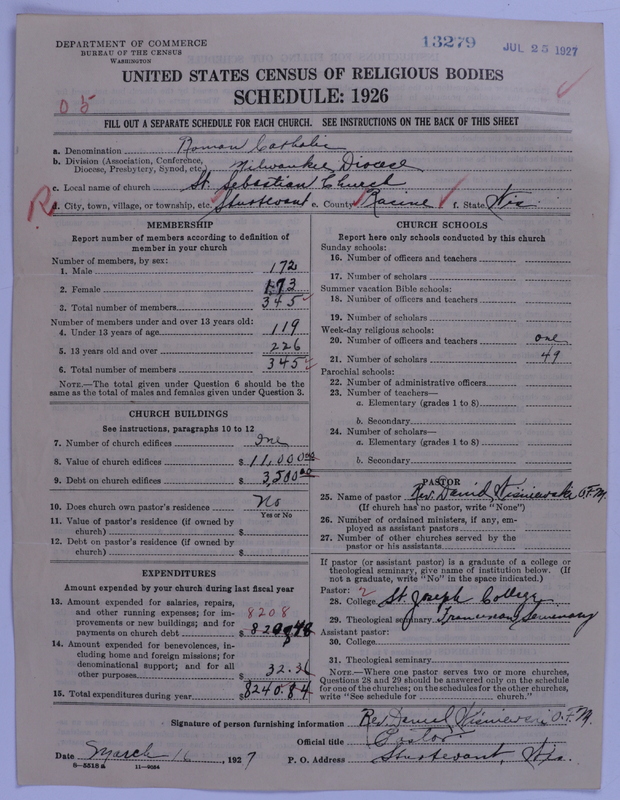 DEPARTMENT OF COMMERCE
BUREAU OF THE CENSUS
WASHINGTON
13279
JUL 25 1927
UNITED STATES CENSUS OF RELIGIOUS BODIES
SCHEDULE: 1926
05
FILL OUT A SEPARATE SCHEDULE FOR EACH CHURCH. SEE INSTRUCTIONS ON THE BACK OF THIS SHEET
a. Denomination Roman Catholic
b. Division (Association, Conference, Diocese, Presbytery, Synod, etc.) Milwaukee Diocese
c. Local name of church St. Sebastian Church
R d. City, town, village, or township, etc. Sturtevant e. County Racine f. State Wis.
MEMBERSHIP
Report number of members according to definition of
member in your church
Number of members, by sex:
1. Male 172
2. Female 173
3. Total number of members 345
Number of members under and over 13 years old:
4. Under 13 years of age 119
5. 13 years old and over 226
6. Total number of members 345
NOTE.—The total given under Question 6 should be the
same as the total of males and females given under Question 3.
CHURCH BUILDINGS
See instructions, paragraphs 10 to 12
7. Number of church edifices One
8. Value of church edifices $11,000.00
9. Debt on church edifices $3,500.00
10. Does church own pastor's residence No
Yes or No
11. Value of pastor's residence (if owned by
church) $
12. Debt on pastor's residence (if owned by
church) $
EXPENDITURES
Amount expended by your church during last fiscal year
13. Amount expended for salaries, repairs,
and other running expenses; for im-
provements or new buildings; and for
payments on church debt 8208 $
14. Amount expended for benevolences, in-
cluding home and foreign missions; for
denominational support; and for all
other purposes $ 32.36
15. Total expenditures during year $8240.84
CHURCH SCHOOLS
Report here only schools conducted by this church
Sunday schools:
16. Number of officers and teachers
17. Number of scholars
Summer vacation Bible schools:
18. Number of officers and teachers
19. Number of scholars
Week-day religious schools:
20. Number of officers and teachers one
21. Number of scholars 49
Parochial schools:
22. Number of administrative officers
23. Number of teachers—
a. Elementary (grades 1 to 8)
b. Secondary
24. Number of scholars—
a. Elementary (grades 1 to 8)
b. Secondary
PASTOR
25. Name of pastor Rev. Daniel Wisniewski O.F.M.
(If church has no pastor, write "None")
26. Number of ordained ministers, if any, em-
ployed as assistant pastors
27. Number of other churches served by the
pastor or his assistants
If pastor (or assistant pastor) is a graduate of a college or
theological seminary, give name of institution below. (If
not a graduate, write "No" in the space indicated.)
Pastor: 2
28. College St. Joseph College
29. Theological seminary Franciscan Seminary
Assistant pastor:
30. College
31. Theological seminary
NOTE.—Where one pastor serves two or more churches,
Questions 28 and 29 should be answered only on the schedule
for one of the churches; on the schedules for the other churches,
write "See schedule for church."
Signature of person furnishing information Rev. Daniel Wisniewski O.F.M.
Official title Pastor
Date March 16, 1927 P. O. Address Sturtevant, Wis.
8—5518 a 11—9034